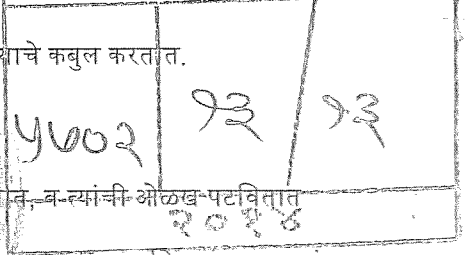 याचे कबुल करतात.
५७०२ १३ १३
त, व त्यांची ओळख पटवितात
२०१४